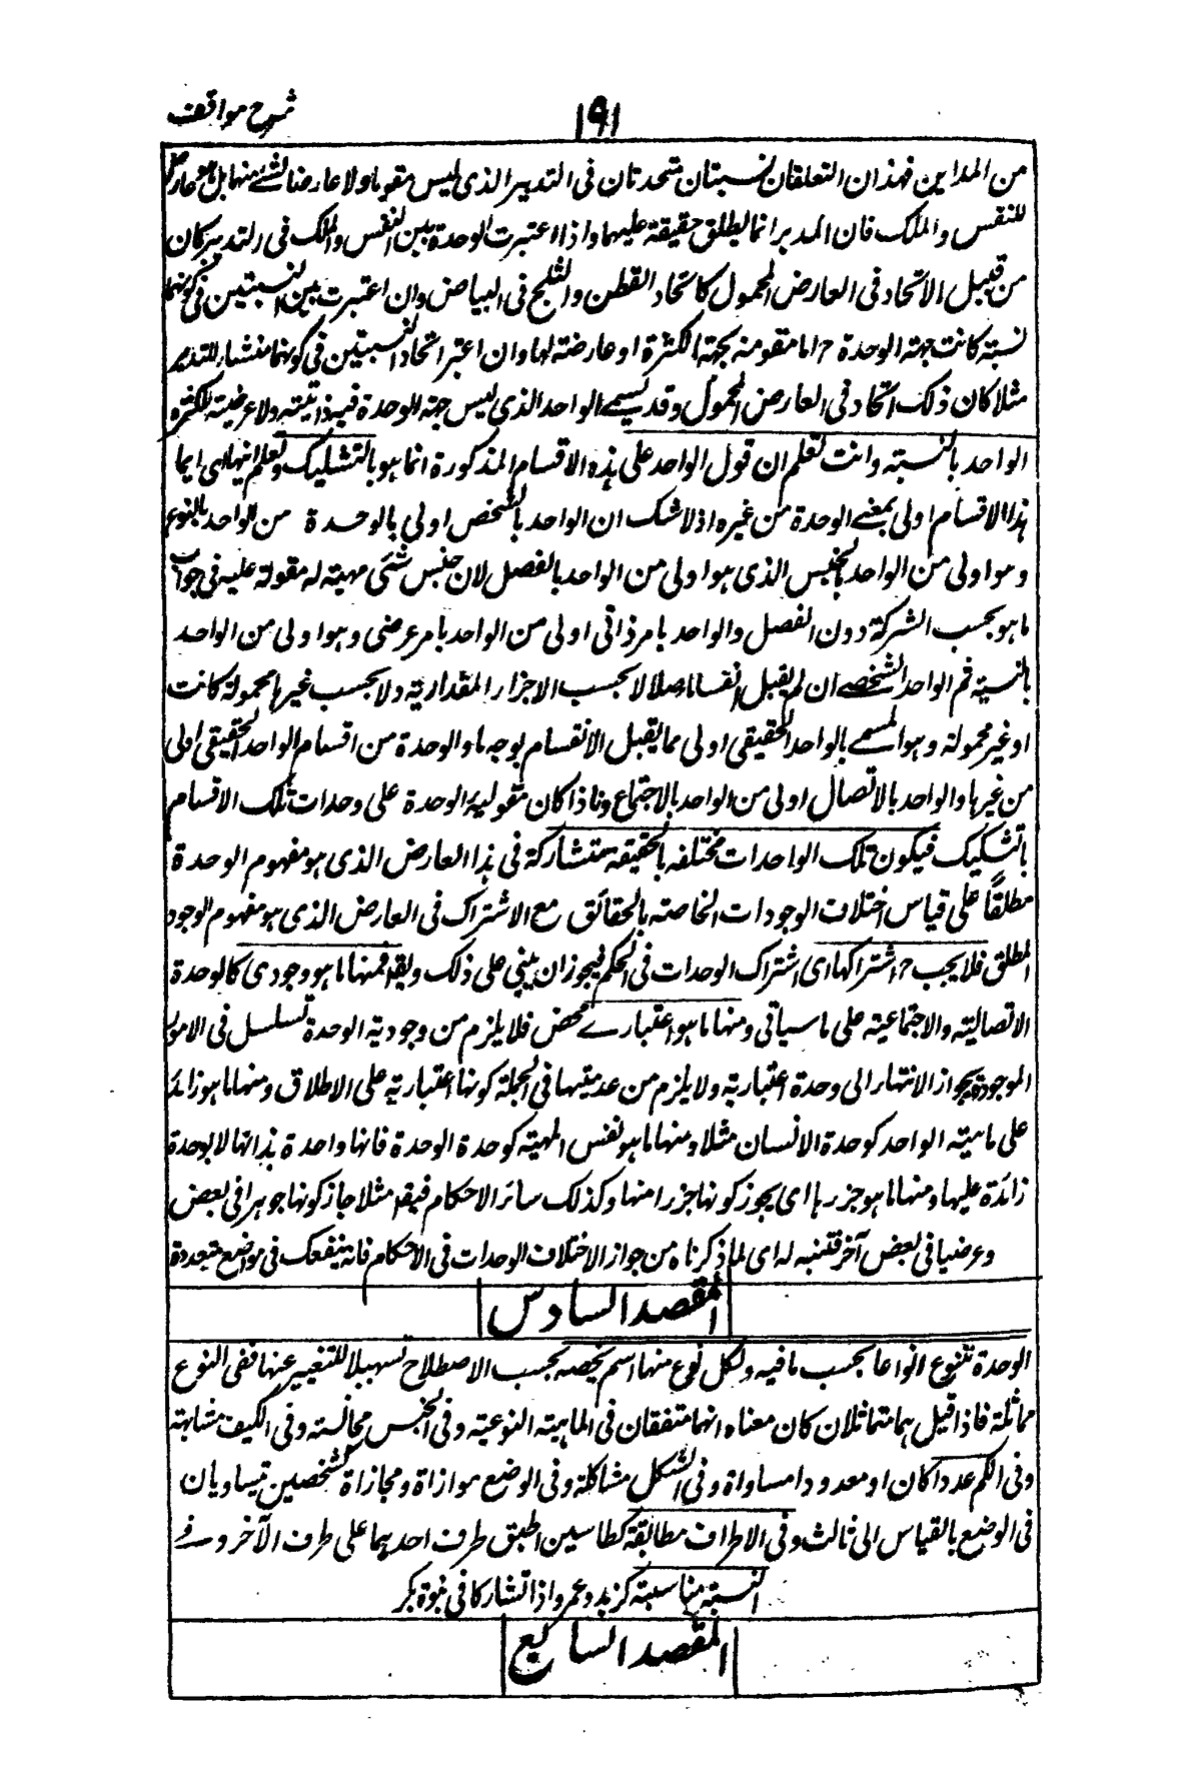 شرح مواقف
١٩١
من المداين فهذان التعلقان نسبتان متحدتان فى التدبير الذى ليس مقوما ولا عارضا لشئ منها بل هو عارض
للنفس والملك فان المدبر انما يطلق حقيقة عليهما واذا اعتبرت الوحدة بين النفس والملك فى التدبير كان
من قبيل الاتحاد فى العارض المحمول كاتحاد القطن والثلج فى البياض وان اعتبرت بين النسبتين فى كونهما
نسبة كانت جهة الوحدة ح اما مقومة بجهة الكثرة او عارضة لها وان اعتبر اتحاد النسبتين فى كونهما منشار للتدبير
مثلا كان ذلك اتحاد فى العارض المحمول وقد يسمى الواحد الذى ليس جهة الوحدة فيه ذاتية ولا عرضية للكثرة
الواحد بالنسبة وانت تعلم ان قول الواحد على هذه الاقسام المذكورة انما هو بالتشكيك وتعلم انها اى ايما
هذا الاقسام اولى بمعنى الوحدة من غيره اذ لا شك ان الواحد بالشخص اولى بالوحدة من الواحد بالنوع
وهو اولى من الواحد بالجنس الذى هو اولى من الواحد بالفصل لان جنس شئى مهية له مقولة عليه فى جواب
ما هو بحسب الشركة دون الفصل والواحد بامر ذاتى اولى من الواحد بامر عرضى وهو اولى من الواحد
بالنسبة ثم الواحد الشخصى ان لم يقبل انقساما اصلا لا بحسب الاجزار المقدارية ولا بحسب غيرها محمولة كانت
او غير محمولة وهو المسمى بالواحد الحقيقى اولى مما يقبل الانقسام بوجه ما والوحدة من اقسام الواحد الحقيقى اولى
من غيرها والواحد بالاتصال اولى من الواحد بالاجتماع واذا كان مقولية الوحدة على وحدات تلك الاقسام
بالتشكيك فيكون تلك الواحدات مختلفه بالحقيقة متشاركة فى هذا العارض الذى هو مفهوم الوحدة
مطلقاً على قياس اختلاف الوجودات الخاصة بالحقائق مع الاشتراك فى العارض الذى هو مفهوم الوجود
المطلق فلا يجب ح اشتراكها اى اشتراك الوحدات فى الحكم فيجوز ان يبنى على ذلك ويقه فمنها ما هو وجودى كالوحدة
الاتصالية والاجتماعية على ما سياتى ومنها ما هو اعتبارى محض فلا يلزم من وجودية الوحدة تسلسل فى الامور
الموجودة بجواز الانتهار الى وحدة اعتبارية ولا يلزم من عدميتها فى الجملة كونها اعتبارية على الاطلاق ومنها ما هو زائد
على ماهية الواحد كوحدة الانسان مثلا ومنها ما هو نفس المهية كوحدة الوحدة فانها واحدة بذاتها لا بوحدة
زائدة عليها ومنها ما هو جزرها اى يجوز كونها جزرا منها وكذلك سائر الاحكام فيقه مثلا جاز كونها جوهرا فى بعض
وعرضيا فى بعض آخر فتنبه له اى لما ذكرناه من جواز الاختلاف الوحدات فى الاحكام فانه ينفعك فى مواضع متعددة
المقصد السادس
الوحدة تتنوع انواعا بحسب ما فيه ولكل نوع منها اسم يخصه بحسب الاصطلاح تسهيلا للتعبير عنها ففى النوع
مماثلة فاذا قيل هما متماثلان كان معناه انهما متفقان فى الماهية النوعية وفى الجنس مجانسة وفى الكيف مشابهة
وفى الكم عددا كان او معدودا مساواة وفى الشكل مشاكلة وفى الوضع موازاة ومحاذاة كشخصين تساويان
فى الوضع بالقياس الى ثالث وفى الاطراف مطابقة كطاسين اطبق طرف احدهما على طرف الآخر وفى
النسبة مناسبة كزيد وعمرو اذا تشاركا فى نبوة بكر
المقصد السابع